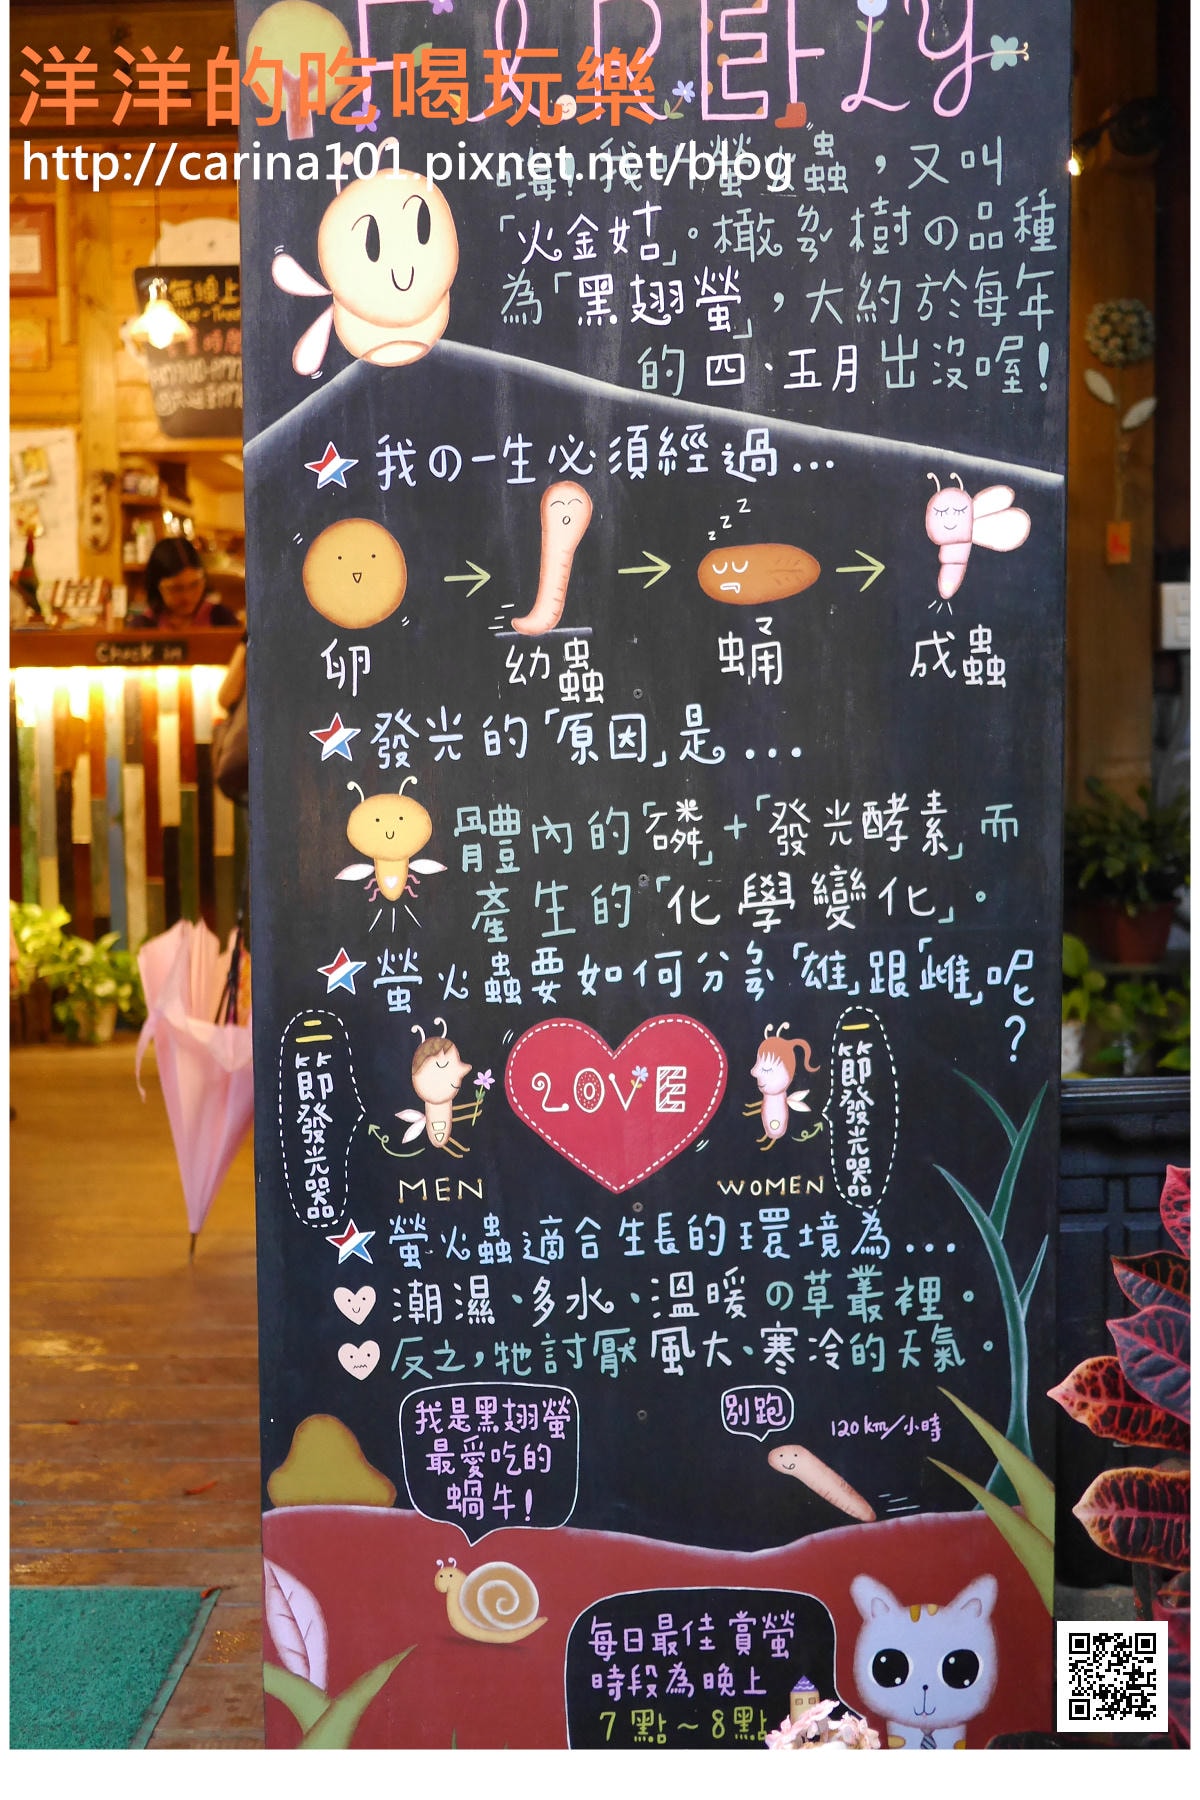 FIREFLY
洋洋的吃喝玩樂
http://carina101.pixnet.net/blog
嗨!我叫螢火蟲,又叫
「火金姑」。橄欖樹の品種
為「黑翅螢」,大約於每年
的四、五月出沒喔!
我の一生必須經過...
卵
幼蟲
蛹
成蟲
發光的「原因」是...
體內的「磷」+「發光酵素」而
產生的「化學變化」。
螢火蟲要如何分多「雄」跟「雌」呢
?
二節發光器
LOVE
一節發光器
MEN
WOMEN
螢火蟲適合生長的環境為...
潮濕、多水、溫暖の草叢裡。
反之,牠討厭風大、寒冷的天氣。
我是黑翅螢
最愛吃的
蝸牛!
別跑
120km/小時
每日最佳賞螢
時段為晚上
7點~8點
Check in